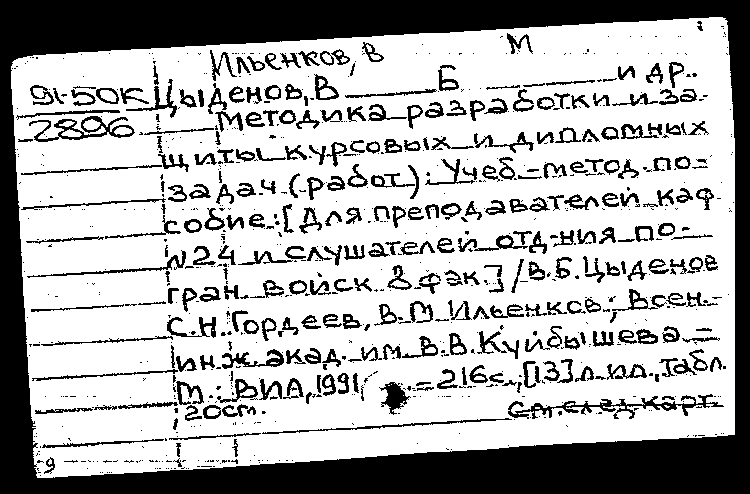 Ильенков, В М
91-50К Цыденов, В Б и др..
2896 Методика разработки и за-
щиты курсовых и дипломных
задач (работ): Учеб.-метод. по-
собие: [Для преподавателей каф
№24 и слушателей отд-ния по-
гран. войск 8 фак.] / В.Б. Цыденов
С.Н. Гордеев, В.М. Ильенков; Воен.-
инж. акад. им. В.В. Куйбышева. =
М.: ВИА, 1991 = 216 с., [13] л. ил., табл.
; 20 см.
См. след карт.
9